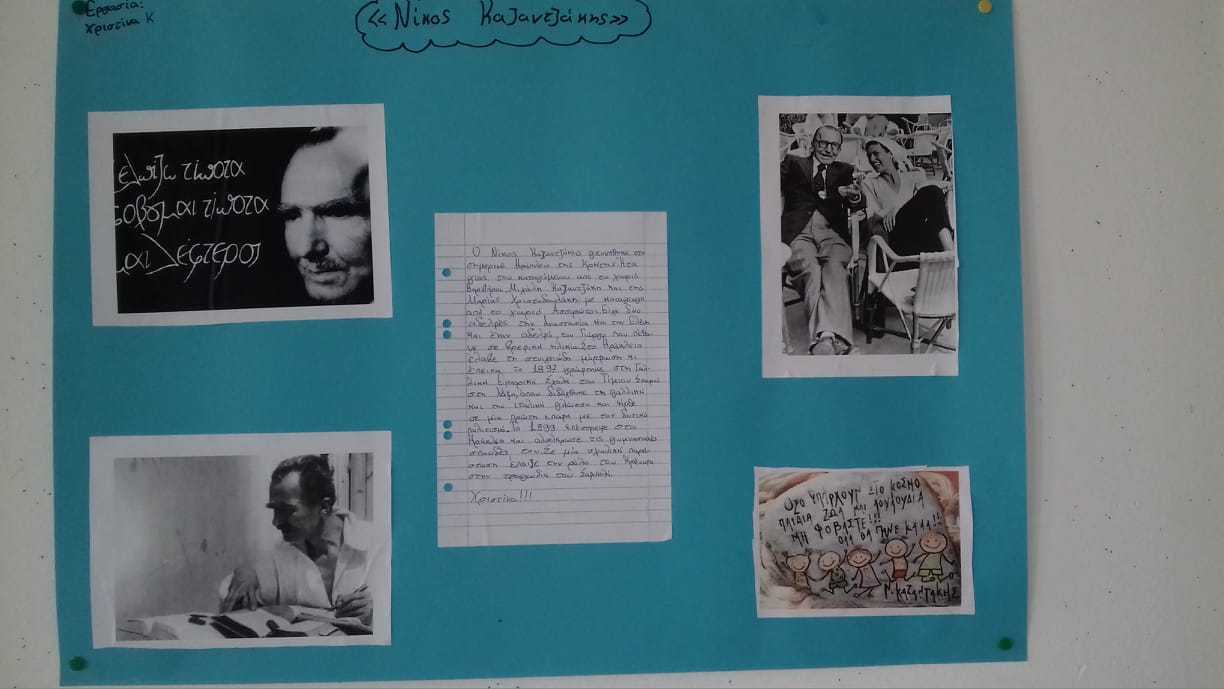 Εργασία:
Χριστίνα Κ
«Νίκος Καζαντζάκης»
ελπίζω τίποτα
φοβᾶμαι τίποτα
μαι λέφτερος
Ο Νίκος Καζαντζάκης γεννήθηκε στο
σημερινό Ηράκλειο της Κρήτης. Ήταν
από το χωριό
Βαρβάροι, Μιχάλη Καζαντζάκη και της
Μαρίας Χριστοδουλάκη με καταγωγή
από το χωριό Ασυρώτοι. Είχε δύο
αδελφές την Αναστασία και την Ελένη
και έναν αδελφό, τον Γιώργο που πέθα-
νε σε βρεφική ηλικία. Στο Ηράκλειο
έλαβε τη στοιχειώδη μόρφωση κι
έπειτα το 1897 γράφτηκε στη Γαλ-
λική Εμπορική Σχολή του Τιμίου Σταυρού
στη Νάξο, όπου διδάχθηκε τη γαλλική
και την ιταλική γλώσσα και ήρθε
σε μία πρώτη επαφή με τον δυτικό
πολιτισμό. Το 1899 επέστρεψε στο
Ηράκλειο και ολοκλήρωσε τις γυμνασιακές
σπουδές του. Σε μία σχολική παρά-
σταση έπαιξε τον ρόλο του Κρέοντα
στην τραγωδία του
Χριστίνα!!!
ΟΣΟ ΥΠΑΡΧΟΥΝ ΣΤΟ ΚΟΣΜΟ
ΠΑΙΔΙΑ ΖΩΑ και ΛΟΥΛΟΥΔΙΑ
ΜΗ ΦΟΒΑΣΤΕ!!!
ΟΛΑ ΘΑ ΠΑΝΕ ΚΑΛΑ!!
Ν. ΚΑΖΑΝΤΑΚΗΣ